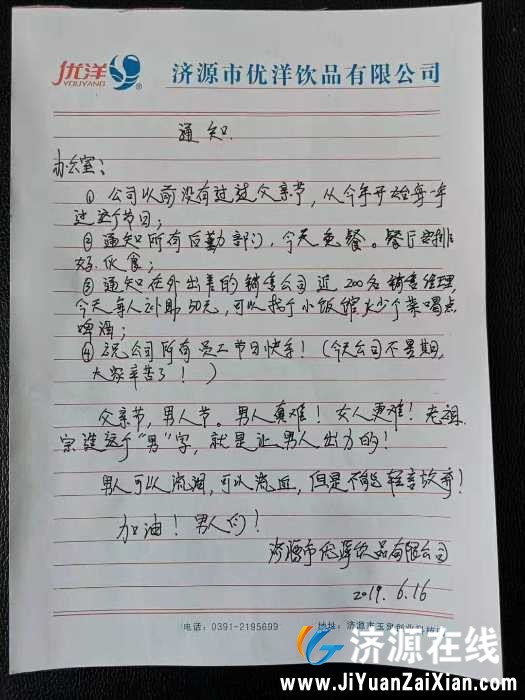 优洋
YOUYANG
®
济源市优洋饮品有限公司
通知
办公室：
① 公司以前没有过过父亲节，从今年开始每一年
过这个节日；
② 通知所有后勤部门，今天免餐。餐厅安排
好伙食；
③ 通知在外出差的销售公司近200名销售经理，
今天每人补助50元，可以找个小饭馆炒个菜喝点
啤酒；
④ 祝公司所有员工节日快乐！（今天公司不是星期，
大家辛苦了！）
父亲节，男人节。男人真难！女人更难！老祖
宗造这个“男”字，就是让男人出力的！
男人可以流泪，可以流血，但是不能轻言放弃！
加油！男人们！
济源市优洋饮品有限公司
2019.6.16
电话：0391-2195699 地址：济源市玉泉
济源在线
www.JiYuanZaiXian.com